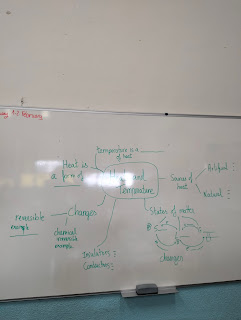 Temperature is a
of heat
Heat is
a form of
Heat and
Temperature
Sources of
heat
Artificial
Natural
Changes
reversible
example
chemical
example
States of matter
changes
Insulators
Conductors